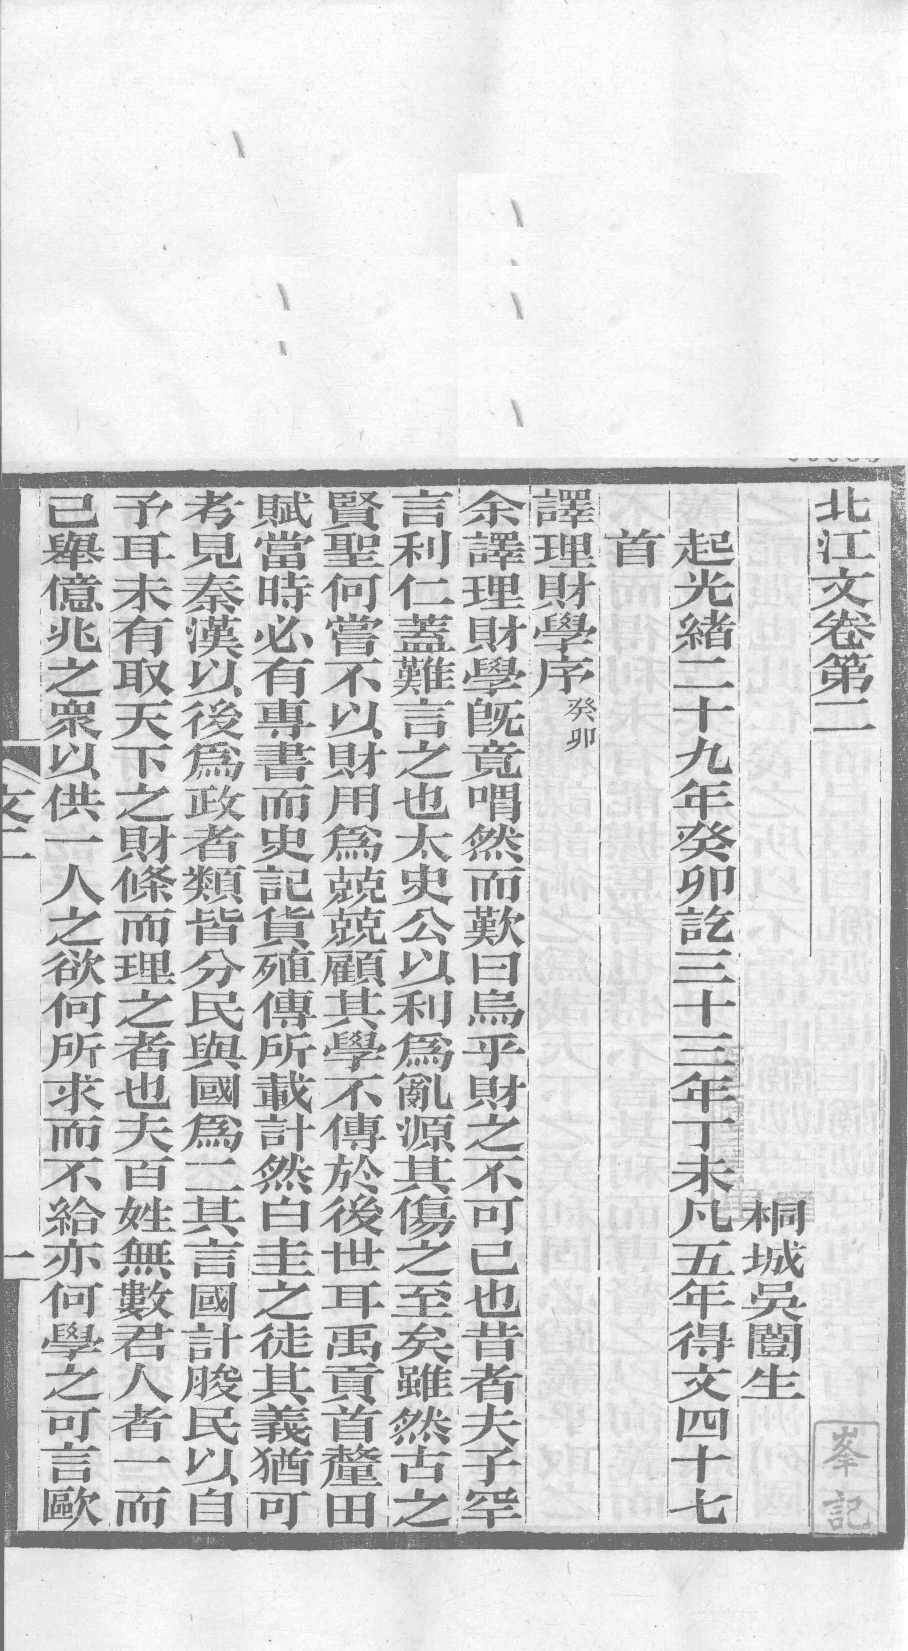 北江文卷第二
桐城吳闓生
起光緒二十九年癸卯訖三十三年丁未凡五年得文四十七
首
譯理財學序癸卯
余譯理財學旣竟喟然而歎曰烏乎財之不可已也昔者夫子罕
言利仁蓋難言之也太史公以利爲亂源其傷之至矣雖然古之
賢聖何嘗不以財用爲兢兢顧其學不傳於後世耳禹貢首釐田
賦當時必有專書而史記貨殖傳所載計然白圭之徒其義猶可
考見秦漢以後爲政者類皆分民與國爲二其言國計朘民以自
予耳未有取天下之財條而理之者也夫百姓無數君人者一而
已舉億兆之衆以供一人之欲何所求而不給亦何學之可言歐
文二
一
峯記